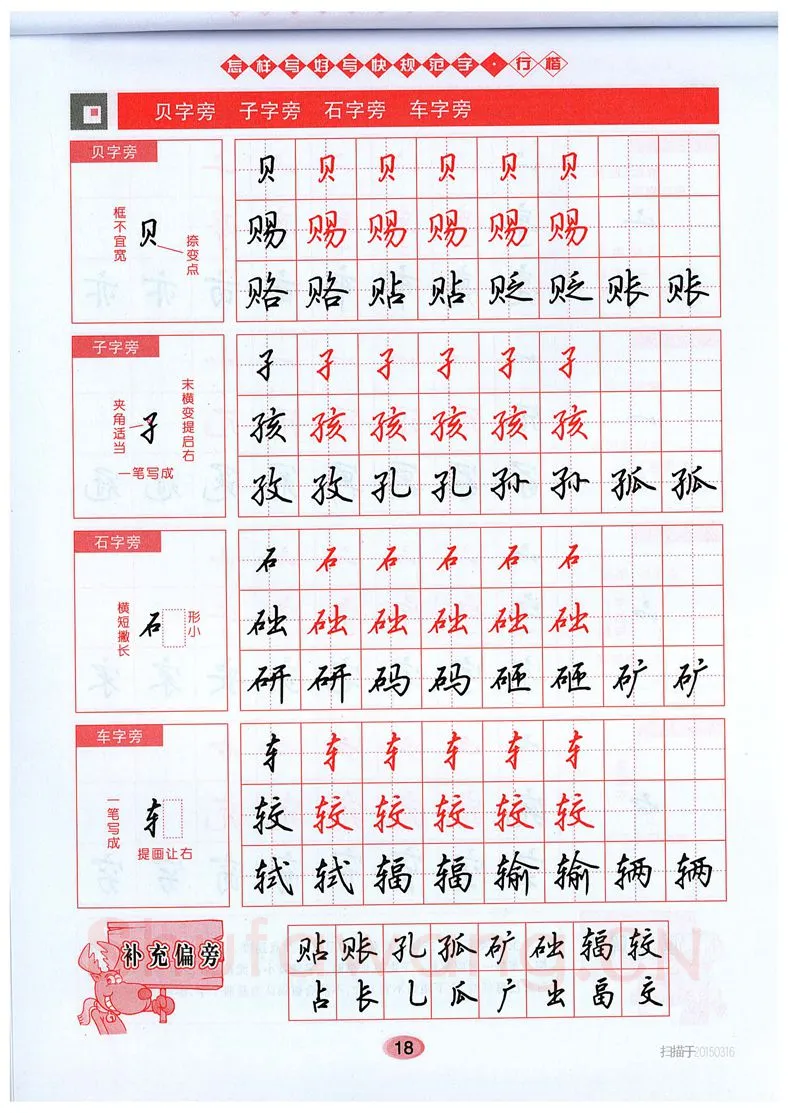 怎样写好写快规范字·行楷
贝字旁 子字旁 石字旁 车字旁
贝字旁
框不宜宽
贝
捺变点
贝 贝 贝 贝 贝 贝
赐 赐 赐 赐 赐 赐
赂 赂 贴 贴 贬 贬 账 账
子字旁
夹角适当
子
末横变提启右
一笔写成
子 子 子 子 子 子
孩 孩 孩 孩 孩 孩
孜 孜 孔 孔 孙 孙 孤 孤
石字旁
横短撇长
石
形小
石 石 石 石 石 石
础 础 础 础 础 础
研 研 码 码 砸 砸 矿 矿
车字旁
一笔写成
车
提画让右
车 车 车 车 车 车
较 较 较 较 较 较
轼 轼 辐 辐 输 输 辆 辆
补充偏旁
贴 账 孔 孤 矿 础 辐 较
占 长 乚 瓜 广 出 畐 交
Shufawang.CN
18
扫描于20150316